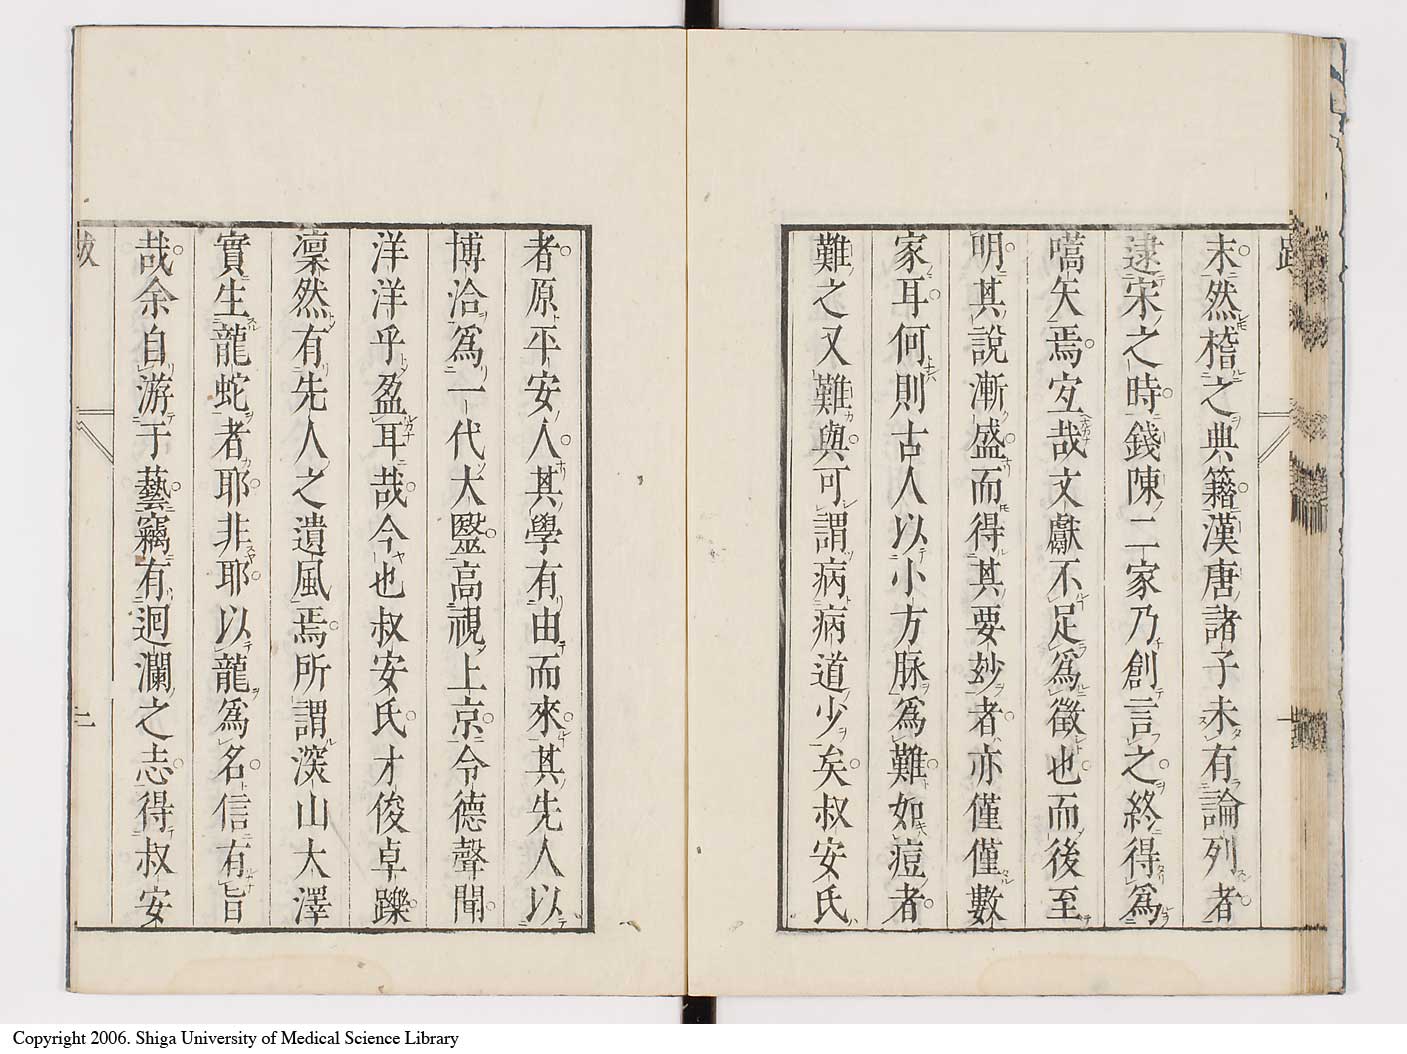 末然稽之典籍漢唐諸子未有論列者
逮宋之時錢陳二家乃創言之終得爲
嚆矢焉宜哉文獻不足爲徵也而後至
明其說漸盛而得其要妙者亦僅僅數
家耳何則古人以小方脉爲難如痘者
難之又難與可謂病病道少矣叔安氏
者原平安人其學有由而來其先人以
博洽爲一代大毉高視上京令德聲聞
洋洋乎盈耳哉今也叔安氏才俊卓躒
凜然有先人之遺風焉所謂深山大澤
實生龍蛇者耶非耶以龍爲名信有旨
哉余自游于藝竊有迴瀾之志得叔安
跋
二
Copyright 2006. Shiga University of Medical Science Library